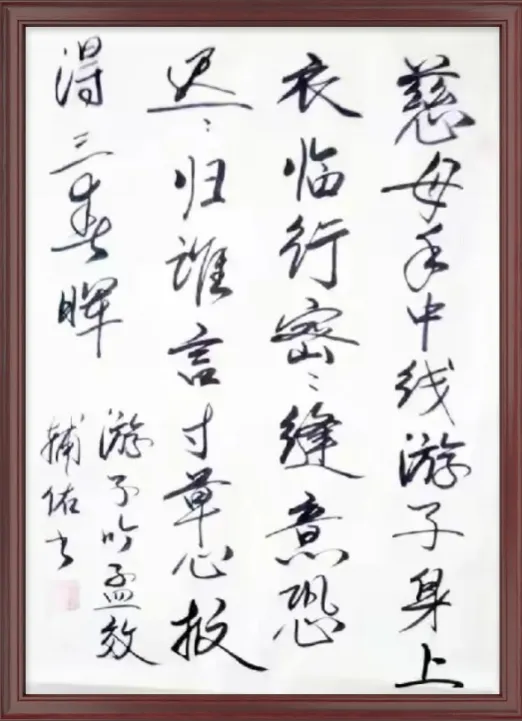 慈母手中线游子身上
衣临行密〻缝意恐
迟〻归谁言寸草心报
得三春晖
游子吟孟效
佑书